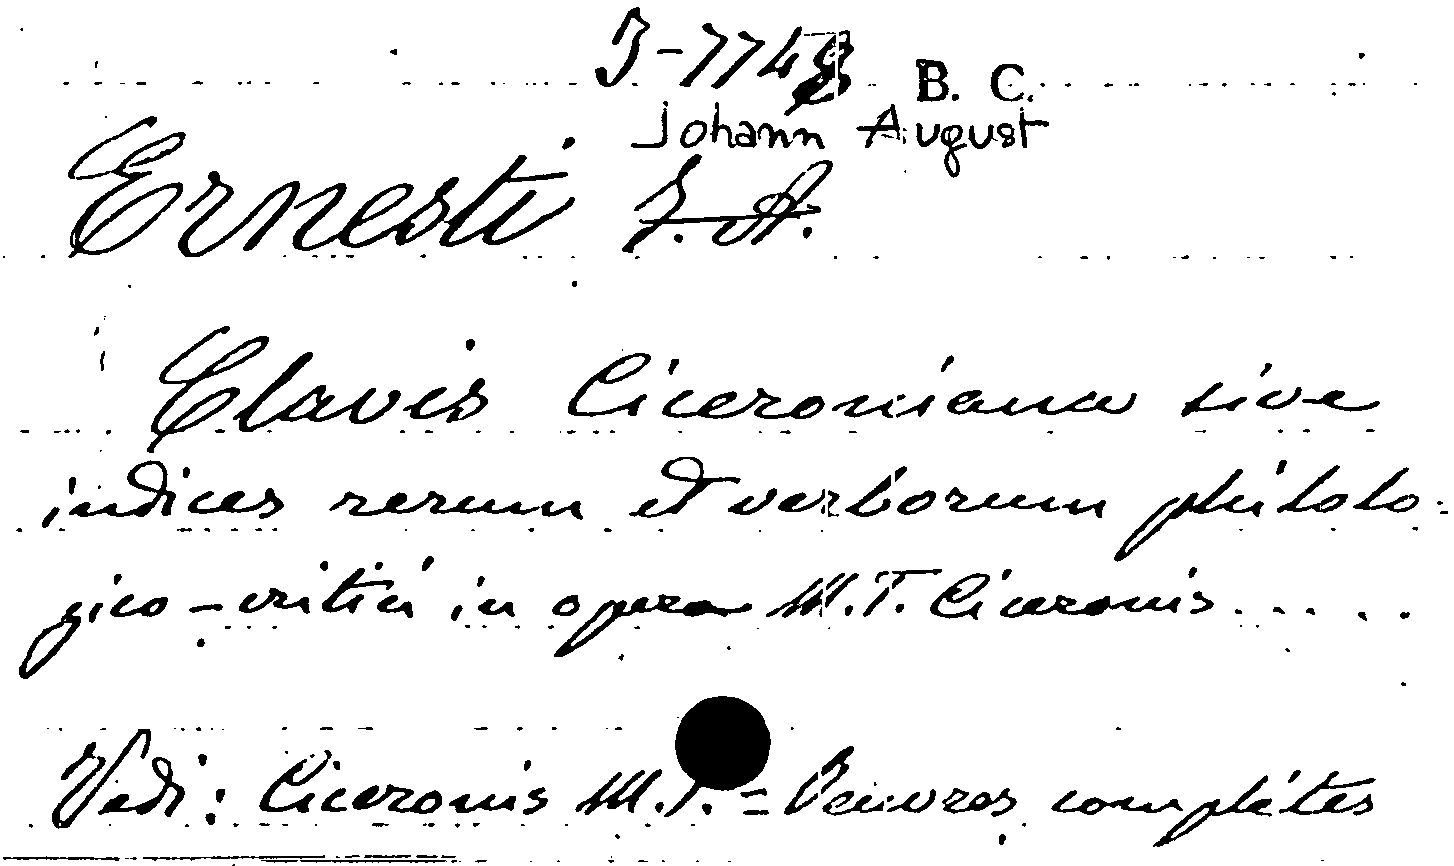 J-7748 B. C.
Johann August
Ernesti J. A.
Clavis Ciceroniana sive
indices rerum et verborum philolo=
gico-critici in opera M.T. Ciceronis.....
Vedi: Ciceronis M.T. = Oeuvres complètes